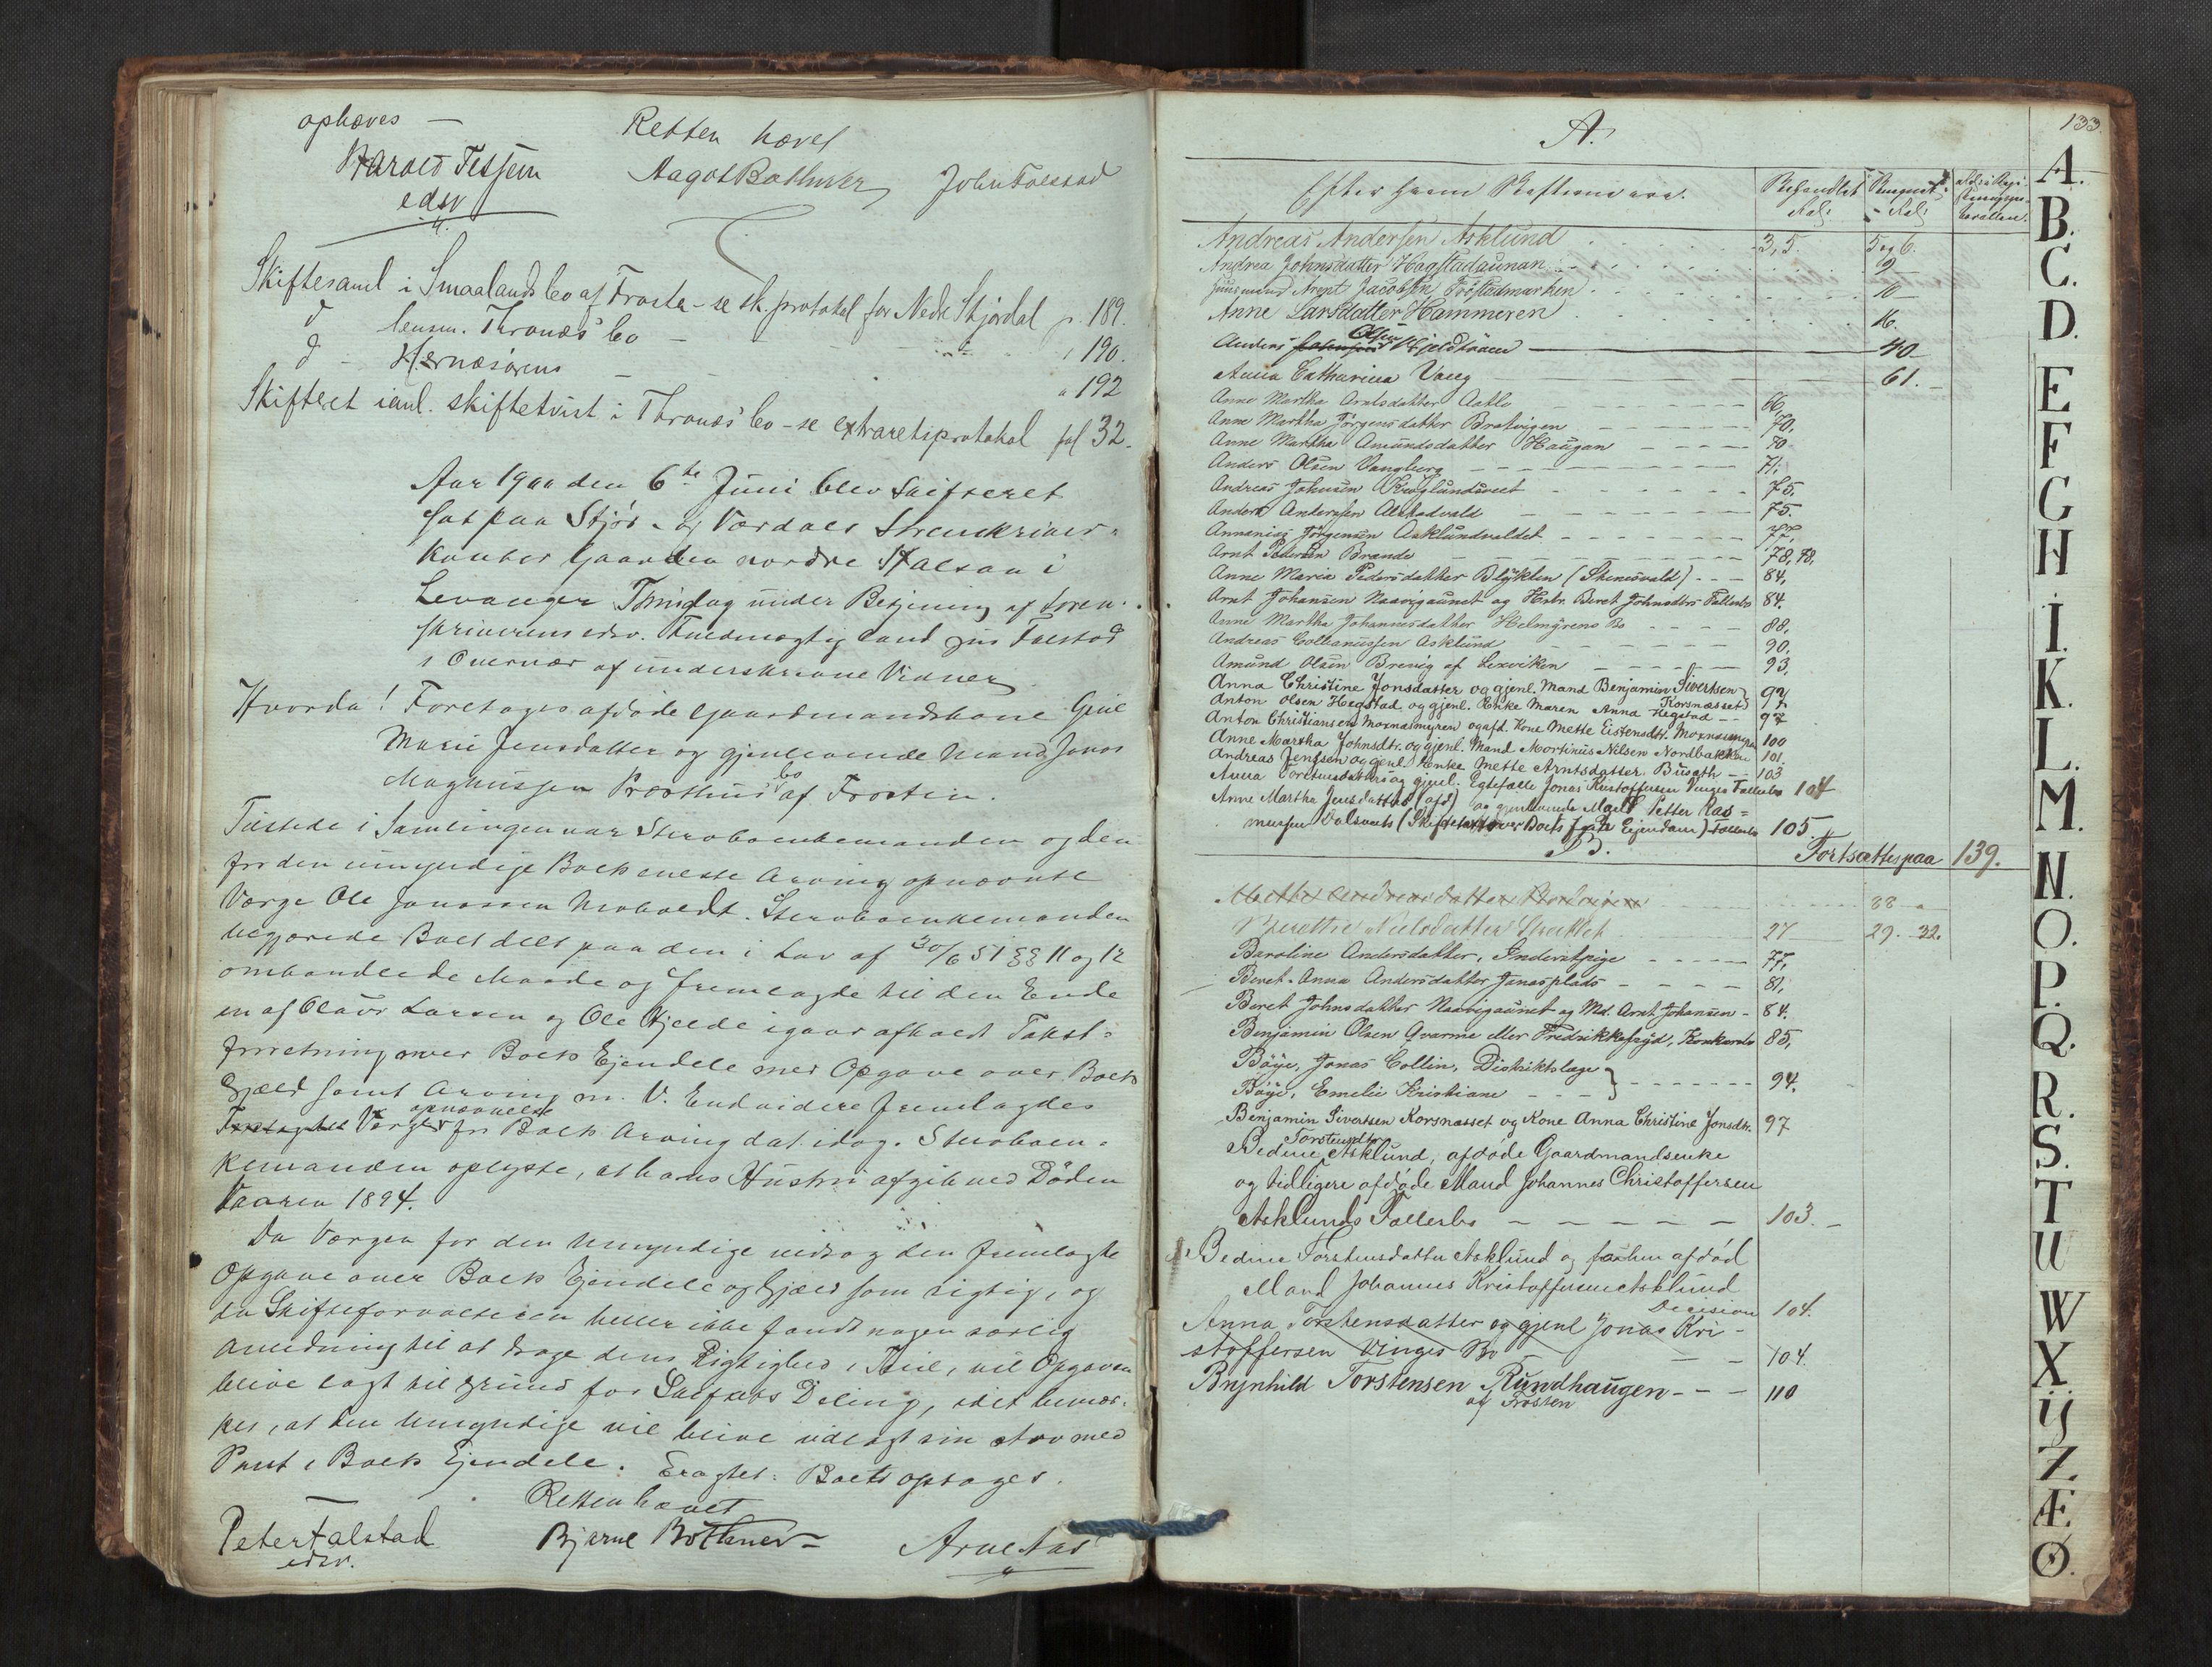 ophæves —
Retten hævet
Harald Tessem
Aagot Bothner
John Falstad
edsv
Skiftesaml i Smaalands bo af Frosta - se sk. protokol for Nedr Stjørdal p. 189.
d lensm. Thronæs' bo — " 190.
d - Hernæsørens — " 192
Skifteret ianl. skiftetvist i Thronæs' bo - se extraretsprotokol fol 32.
Aar 1900 den 6te Juni blev Skifteret
sat paa Stjør- og Værdals Sorenskriver-
kontor Gaarden nordre Stalsan i
Levanger Thinglag under Betjening af Soren-
skriverens edsv. Fuldmægtig cand jur Falstad
i Overvær af underskrevne Vidner
Hvorda! Foretoges afdøde Gaardmandskone
Marie Jensdatter og gjenlevende Mand Jonas
Magnussen Præsthus bo af Frosten.
Tilstede i Samlingen var Stervboenkemanden og den
for den umyndige Boets eneste Arving opnævnte
Værge Ole Jonassen. Stervboenkemanden
begjærede Boet delt paa den i Lov af 30/6 51 §§ 11 og 12
omhandlede Maade og fremlagde til den Ende
en af Olaus Larsen og Ole Hjelde igaar afholdt Takst-
forretning over Boets Ejendele med Opgave over Boets
Gjæld samt Arving m. V. Endvidere fremlagdes
opnævnelse
Værge for Boets Arving dat. idag. Stervboen-
kemanden oplyste, at hans Hustru afgik ved Døden
Vaaren 1894.
Da Værgen for den Umyndige vedtog den fremlagte
Opgave over Boets Ejendele og Gjæld som rigtig, og
da Skifteforvalteren heller ikke fandt nogen særlig
Anledning til at drage dens Rigtighed i Tvil, vil Opgaven
blive lagt til Grund for Skiftets Deling, idet bemær-
kes, at den Umyndige vil blive udlagt sin Arv med
Pant i Boets Ejendele. Eragtet: Boet optages.
Retten hævet
Peter Falstad
Bjarne Bothner
Arne Aas
edsv.
133.
A.
Efter hvem Skiftet
Behandlet Fol:
Andreas Andersen Asklund 3, 5. 5 og 6.
Andrea Johnsdatter Hogstadaunan 9
Huusmand Arnt Jacobsen Tröstadmarken 10
Anne Larsdatter Hammeren 16.
Anders Olsen 40
Anna Catharina Vang 61.
Anne Martha Arntsdatter Aatlo 66,
Anne Martha Jörgensdatter Bratvigen 70.
Anne Martha Amundsdatter Haugan 70
Anders Olsen Vangberg 71.
Andreas Johnsen Kroglundsveet 75.
Anders Andersen Alstadvald 75.
Annanias Jörgensen Asklundvaldet 77,
Arnt Pedersen Brande 78, 78,
Anne Maria Pedersdatter Blykten (Stensvald) 84,
Arnt Johansen Naavigaunet og Hstr. Beret Johnsdtrs Fællesbo 84.
Anne Martha Johannesdatter Helmyrens Bo 88,
Andreas Asklund 90.
Amund Olsen Brevig af Lexviken 93.
Anna Christine Jonsdatter og gjenl. Mand Benjamin Sivertsen Korsnæsset 97
Anton Olsen Hegstad og gjenl. Enke Maren Anna Hegstad 97
Anton Christiansen Moxnæsmyren og afd. Kone Mette Eistensdtr. Moxnæsmyren 100
Anne Martha Johnsdtr. og gjenl. Mand Mortinus Nilsen Nordbakken 101.
Andreas Jenssen og gjenl. Enke Mette Arntsdatter Busath 103
Anna Torstensdatter og gjenl. Egtefælle Jonas Kristoffersen Vinges Fællesbo 104
Anne Martha Jensdatter (afd) og gjenlevende Mand Petter Ras=
mussen Valsvets (Skiftetakst over Boets faste Ejendom) Fællesbo 105.
B. Fortsættes paa 139.
Andreasdatter 28
Nielsdatter 27 29. 32.
Baroline Andersdatter, Inderstpige 77,
Beret Anna Andersdatter Jonasplads 81.
Beret Johnsdatter Naavigaunet og Md. Arnt Johansen 84.
Benjamin Olsen Qvarme eller Fredrikkefryd, Konkursbo 85,
Böye, Jonas Collin, Distriktslæge
Böye, Emelie Kristiane 94.
Benjamin Sivertsen Korsnæsset og Kone Anna Christine Jonsdtr. 97
Torstensdtr
Bedine Asklund, afdøde Gaardmandsenke
og tidligere afdøde Mand Johannes Christoffersen
Asklunds Fællesbo 103.
Bedine Torstensdatter Asklund og forhen afdød
Mand Johannes Kristoffersen Asklund
Decision 104.
Anna Torstensdatter og gjenl Jonas Kri-
stoffersen Vinges Bo 104.
Brynhild Torstensen Rundhaugen 110
af Frosten
A.
B.
C.
D.
E
F
G
H
I.
K.
L.
M.
N.
O.
P.
Q.
R.
S.
T
U
W
X
Y
Z.
Æ.
Ø.